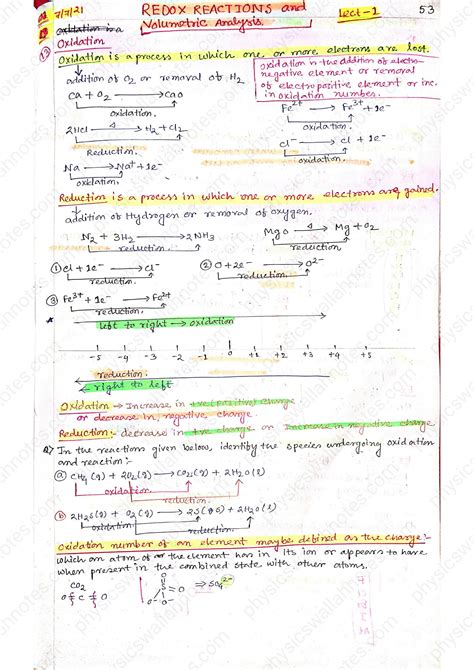 7/7/21
REDOX REACTIONS and
Volumetric Analysis.
Lect-1
53
Oxidation
Oxidation is a process in which one or more electrons are lost.
addition of O2 or removal of H2
Ca + O2 → CaO
oxidation.
2HCl →Δ H2 + Cl2
Reduction.
Na → Na+ + 1e-
oxidation.
oxidation is the addition of electro-
negative element or removal
of electropositive element or inc.
in oxidation number.
Fe2+ → Fe3+ + 1e-
oxidation.
Cl- → Cl + 1e-
oxidation.
Reduction is a process in which one or more electrons are gained.
addition of Hydrogen or removal of oxygen.
N2 + 3H2 → 2NH3
reduction.
MgO →Δ Mg + O2
reduction
① Cl + 1e- → Cl-
reduction.
② O + 2e- → O2-
reduction.
③ Fe3+ + 1e- → Fe2+
reduction.
left to right → oxidation
-5 -4 -3 -2 -1 0 +1 +2 +3 +4 +5
reduction.
← right to left
Oxidation → Increase in +ve (positive) charge
or decrease in negative charge
Reduction:- decrease in +ve charge or Increase in negative charge
Q) In the reactions given below, identify the species undergoing oxidation
and reaction:-
ⓐ CH4(g) + 2O2(g) → CO2(g) + 2H2O(l)
oxidation.
reduction.
ⓑ 2H2S(g) + O2(g) → 2S(s) + 2H2O(l)
oxidation
reduction.
Oxidation number of an element maybe defined as the charge:-
which an atom of the element has in its ion or appears to have
when present in the combined state with other atoms.
CO2
O = C = O
O
S
O
O-
O-
⇒ SO4 2-
physicswallahnotes.com